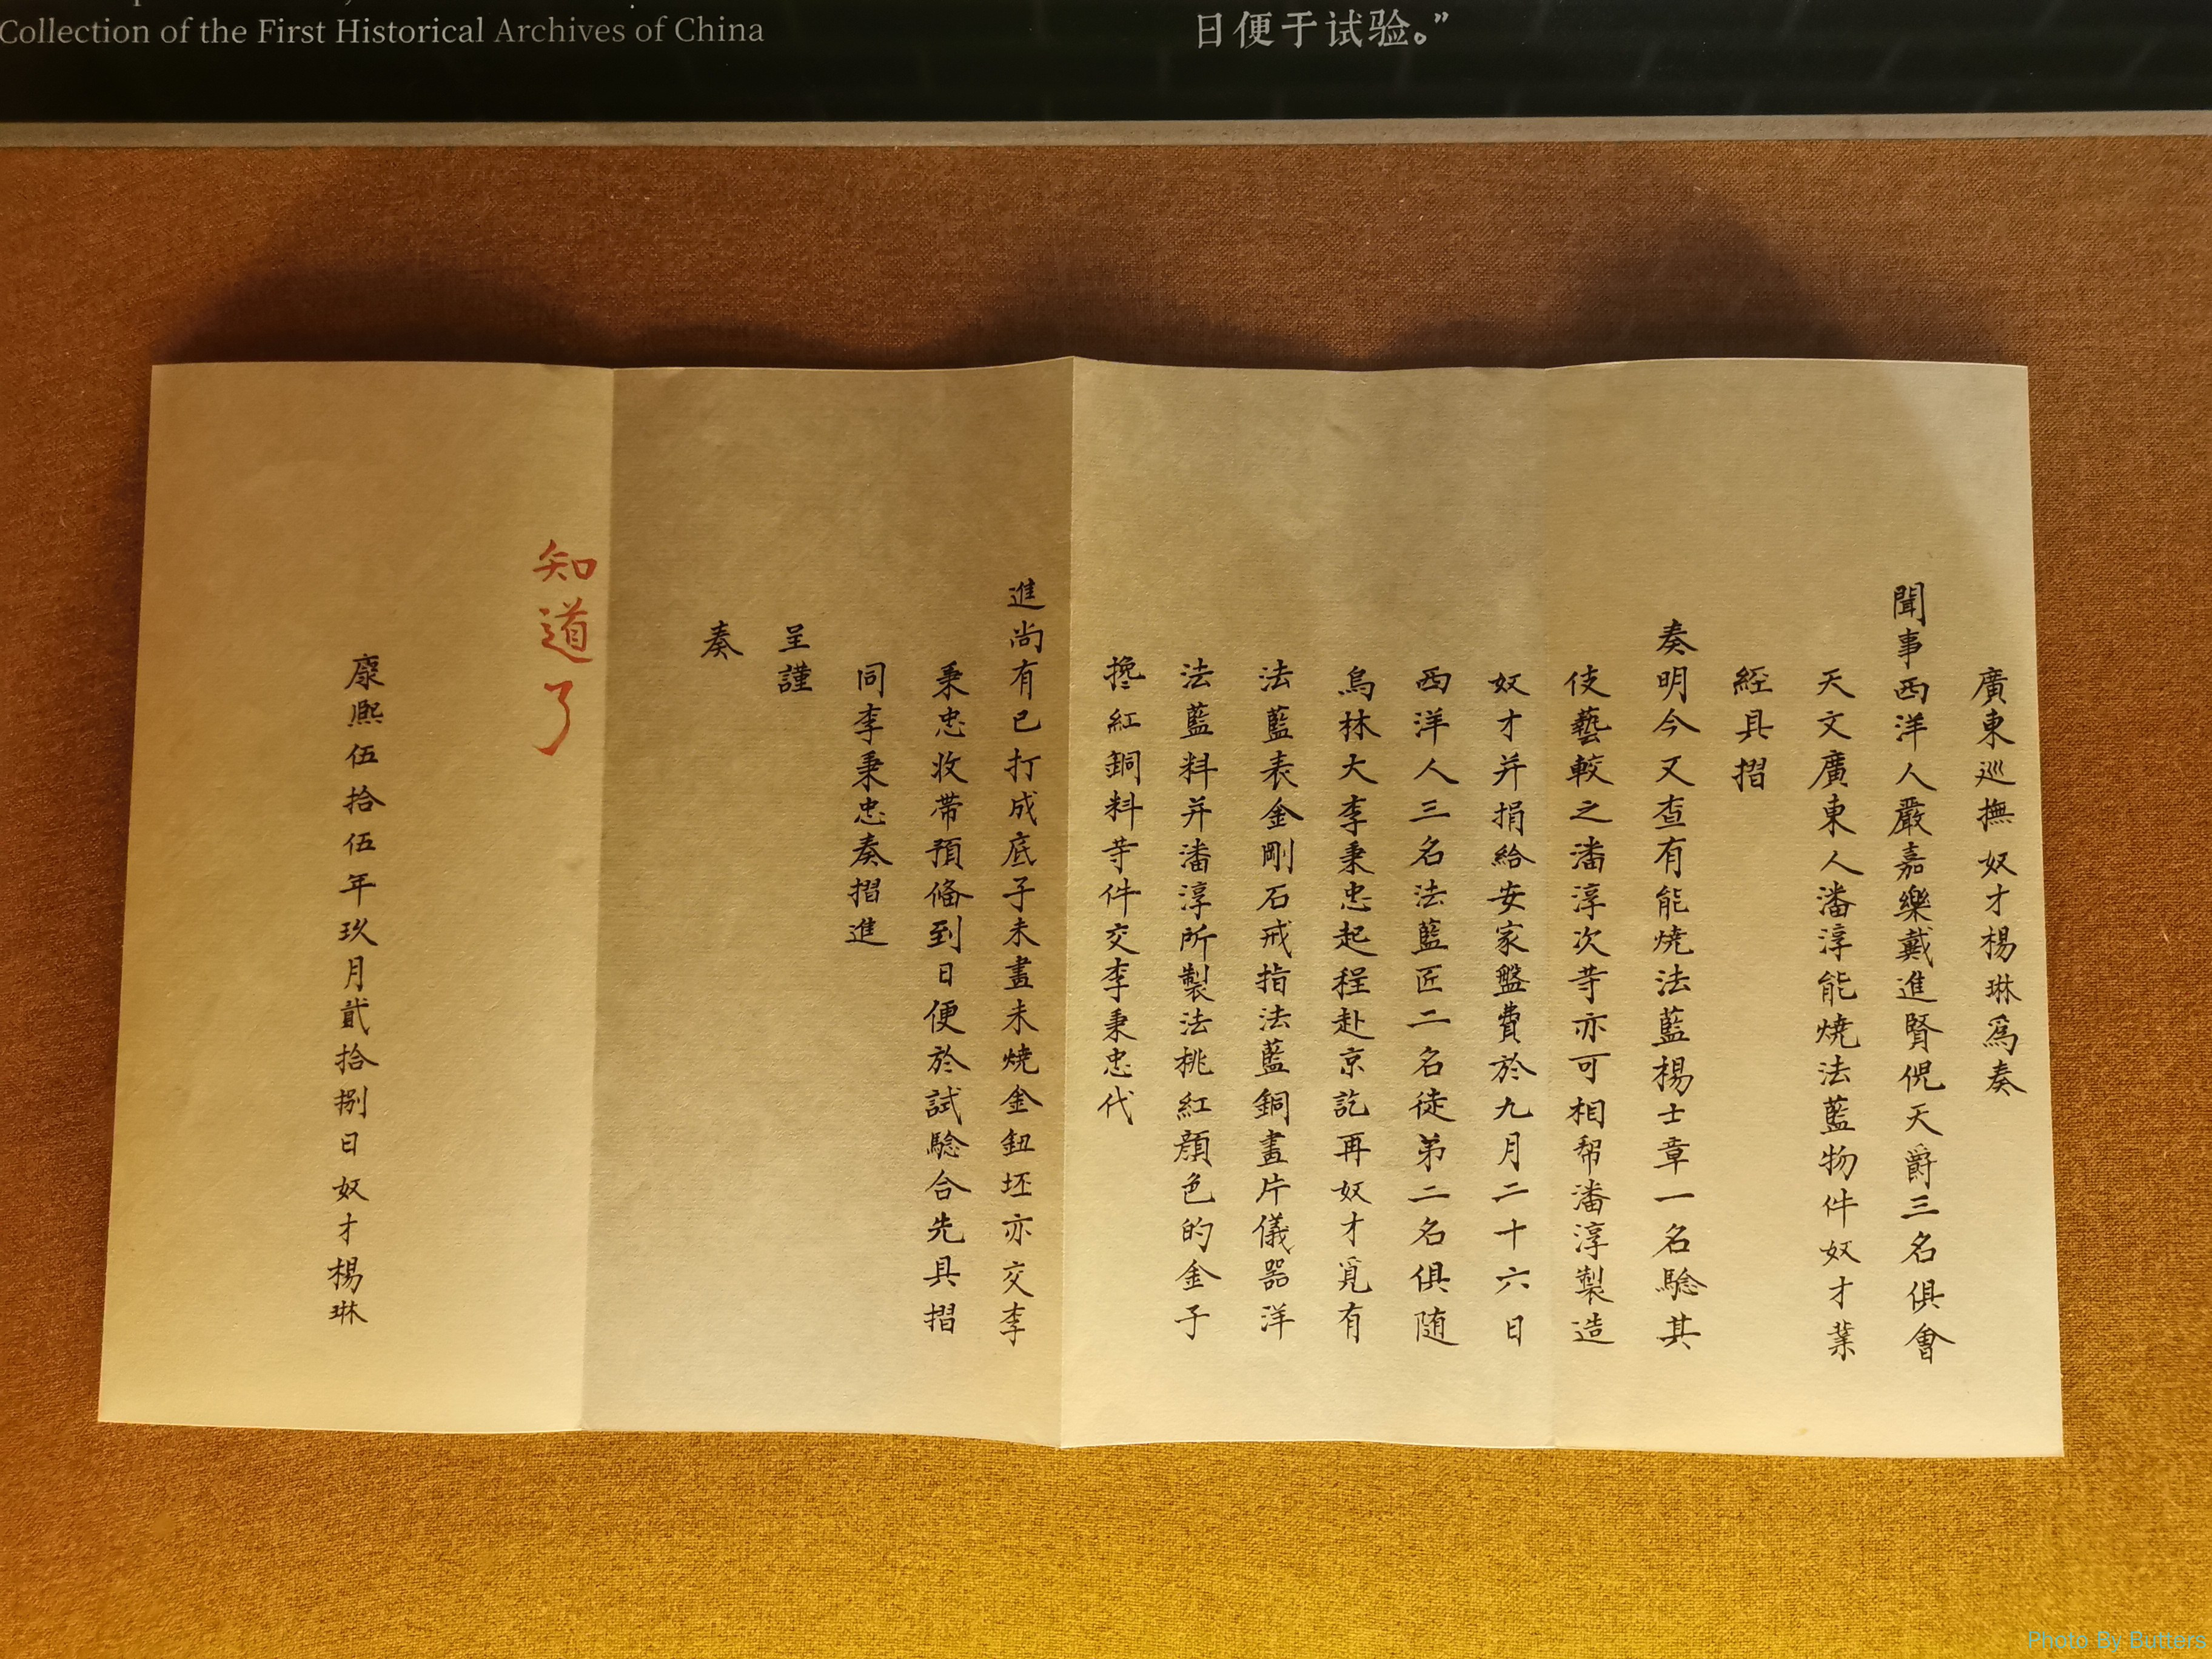 Collection of the First Historical Archives of China
日便于试验。”
廣東巡撫奴才楊琳爲奏
聞事西洋人嚴嘉樂戴進賢倪天爵三名俱會
天文廣東人潘淳能燒法藍物件奴才業
經具摺
奏明今又查有能燒法藍楊士章一名驗其
伎藝較之潘淳次等亦可相帮潘淳製造
奴才并捐給安家盤費於九月二十六日
西洋人三名法藍匠二名徒弟二名俱随
烏林大李秉忠起程赴京訖再奴才覓有
法藍表金剛石戒指法藍銅畫片儀器洋
法藍料并潘淳所製法桃紅顔色的金子
攙紅銅料等件交李秉忠代
進尚有已打成底子未畫未燒金鈕坯亦交李
秉忠收帶預俻到日便於試驗合先具摺
同李秉忠奏摺進
呈謹
奏
知道了
康熙伍拾伍年玖月貳拾捌日奴才楊琳
Photo By Butters